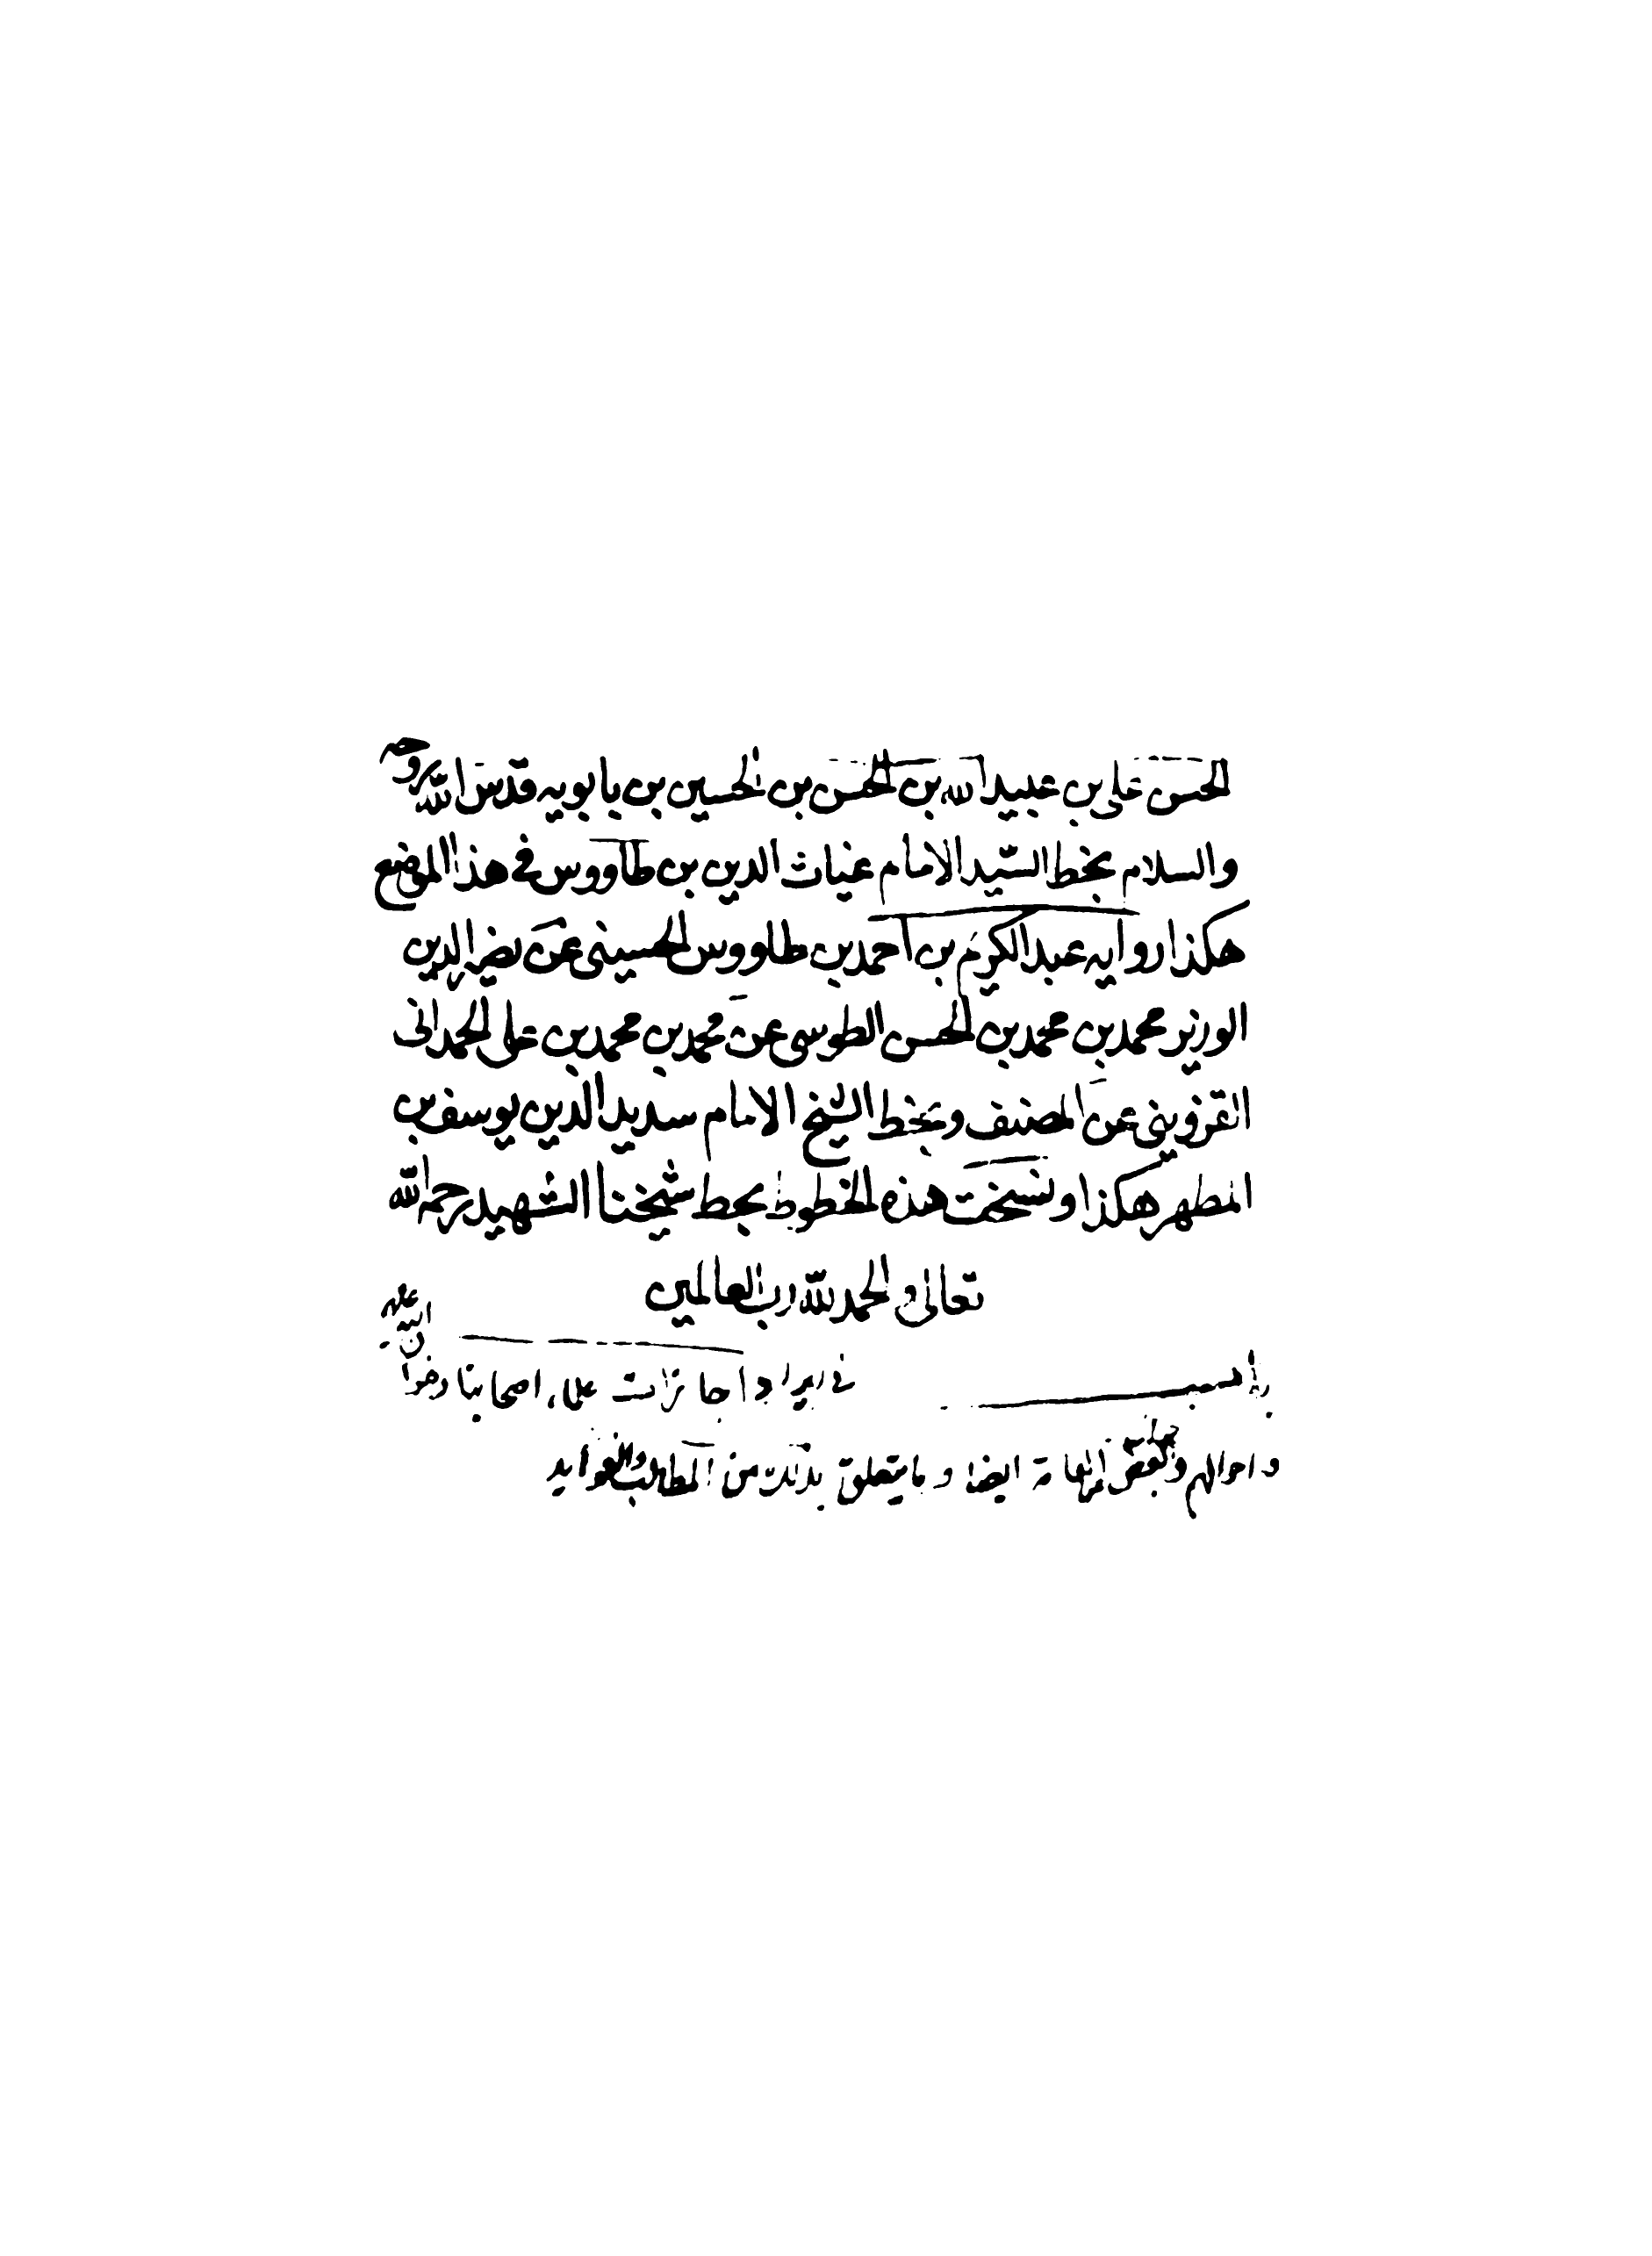 الحسن علی بن عبیدالله بن الحسن بن الحسین بن بابویه قدس الله روحه
والسلام بخط السّید الامام غیاث الدین بن طاووس فی هذا الموضع
هکذا روایه عبدالکریم بن احمد بن طاووس الحسینی عن نصیر الدین
الوزیر محمد بن محمد بن الحسن الطوسی عن محمد بن محمد بن علی الحمدانی
القزوینی عن المصنف وبخط الشیخ الامام سدید الدین یوسف بن
المطهر هکذا ونسخت هذه الخطوط بخط شیخنا الشهید رحمه الله
تعالی والحمد لله رب العالمین
باب فی ایراد اجازات علماء اصحابنا رضوان الله علیهم
واحوالهم وبعض العامة ایضا وما یتعلق بذلک من المطالب والفواید